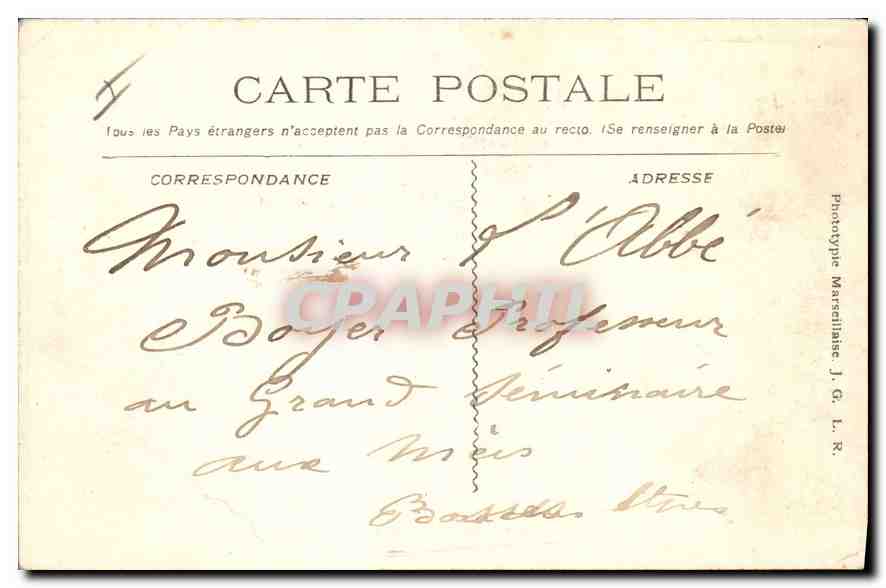 CARTE POSTALE
Tous les Pays étrangers n'acceptent pas la Correspondance au recto. (Se renseigner à la Poste)
CORRESPONDANCE
ADRESSE
Monsieur L'Abbé
Boyer Professeur
au Grand Séminaire
aux Méis
Basses Alpes
CPAPHIL
Phototypie Marseillaise. J. G. L. R.